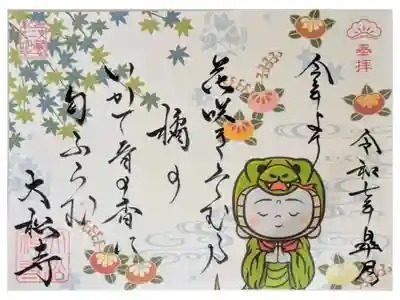 奉拝
令和七年 皐月
今年より
花咲きそむる
橘の
いかて昔の香に
匂ふらむ
大松寺